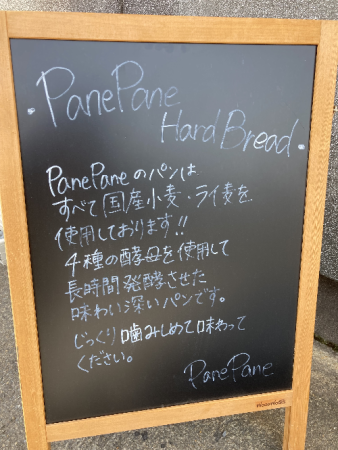 ・PanePane
Hard Bread・
PanePaneのパンは
すべて国産小麦・ライ麦を
使用しております!!
4種の酵母を使用して
長時間発酵させた
味わい深いパンです。
じっくり噛みしめて味わって
ください。
PanePane